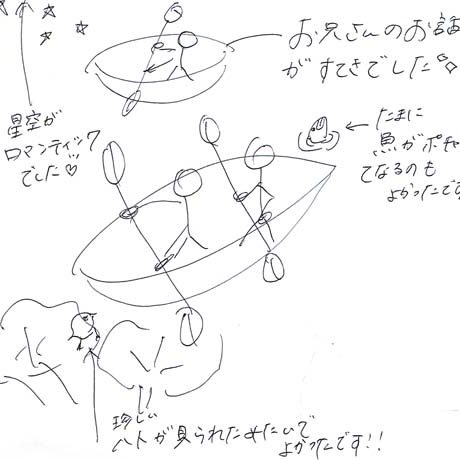 お兄さんのお話
がすてきでした
星空が
ロマンティック
でした♡
たまに
魚がポチャ
てなるのも
よかったです
珍しい
ハトが見られたみたいで
よかったです!!